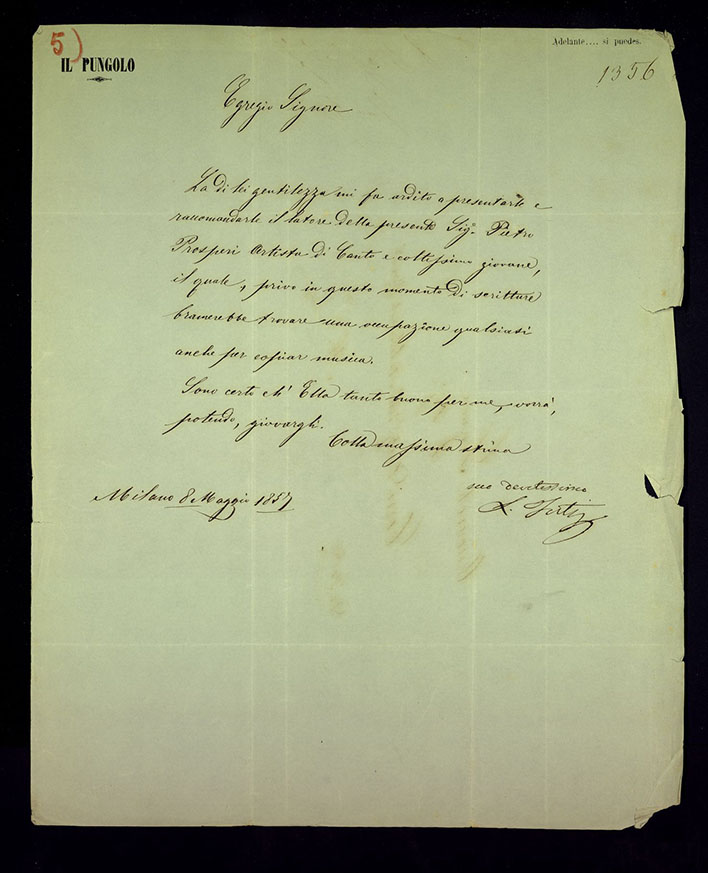 5)
IL PUNGOLO
Adelante.... si puedes.
1356
Egregio Signore
La di lei gentilezza mi fa ardito a presentarle e
raccomandarle il latore della presente Sig.r Pietro
Prosperi Artista di Canto e coltissimo giovane,
il quale, privo in questo momento di scritture
bramerebbe trovare una occupazione qualsiasi
anche per copiar musica.
Sono certo ch' Ella tanto buono per me, vorrà,
potendo, giovargli.
Colla massima stima
suo devotissimo
Milano 8 Maggio 1857
L. Fortis